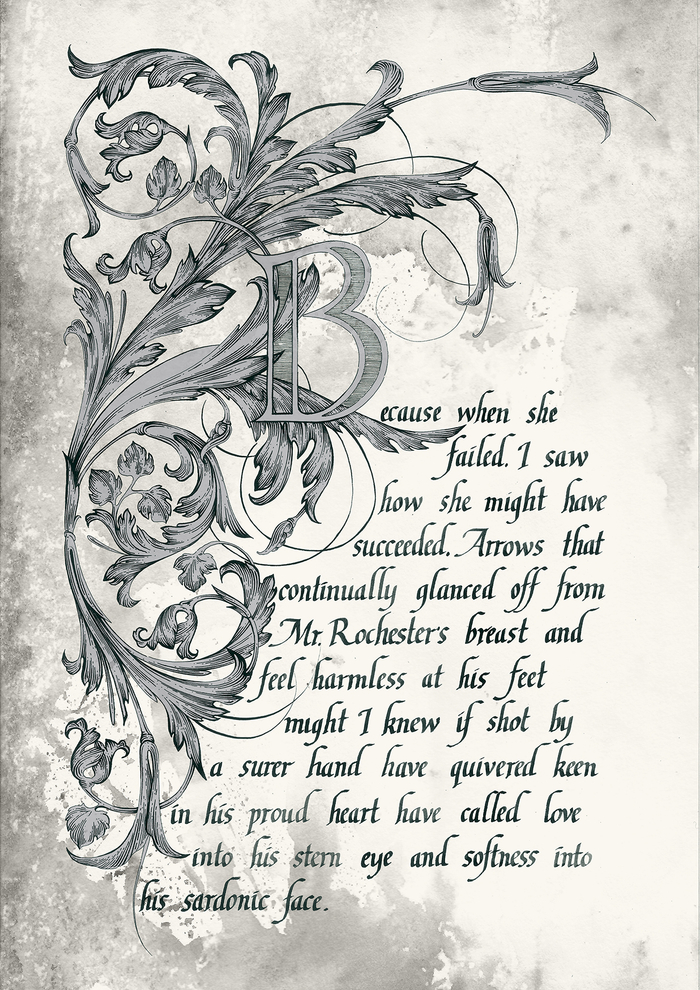 Because when she
failed. I saw
how she might have
succeeded. Arrows that
continually glanced off from
Mr. Rochester's breast and
feel harmless at his feet
might I knew if shot by
a surer hand have quivered keen
in his proud heart have called love
into his stern eye and softness into
his sardonic face.